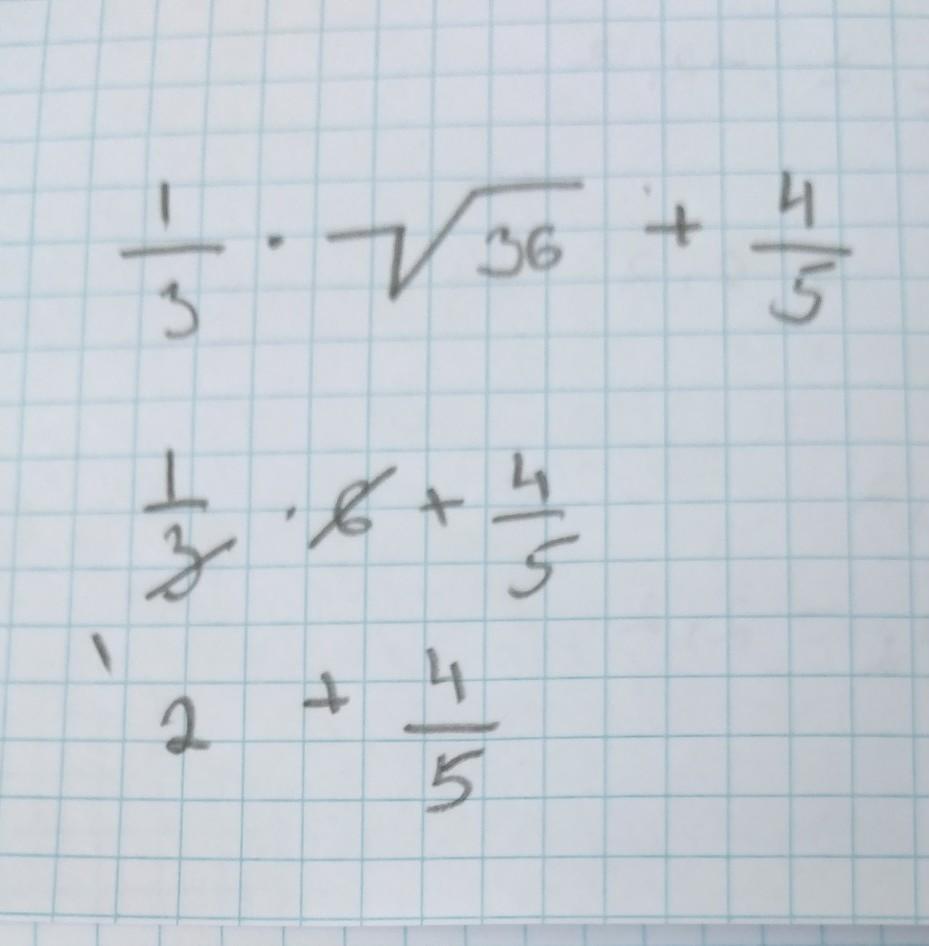 1/3 · √36 + 4/5
1/3 · 6 + 4/5
2 + 4/5